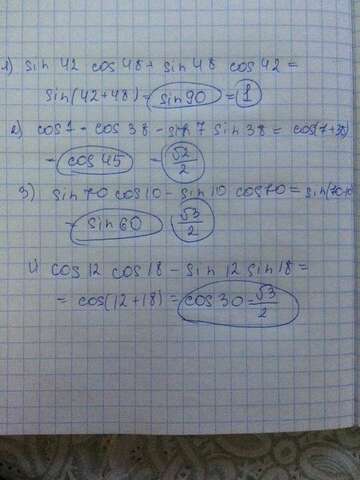 1) sin 42 cos 48 + sin 48 cos 42 =
sin(42+48) - sin 90 = 1
2) cos 7 - cos 38 - sin 7 sin 38 = cos(7+38)
- cos 45 - √2/2
3) sin 70 cos 10 - sin 10 cos 70 = sin(70-10
- sin 60 √3/2
4) cos 12 cos 18 - sin 12 sin 18 =
= cos(12+18) = cos 30 = √3/2